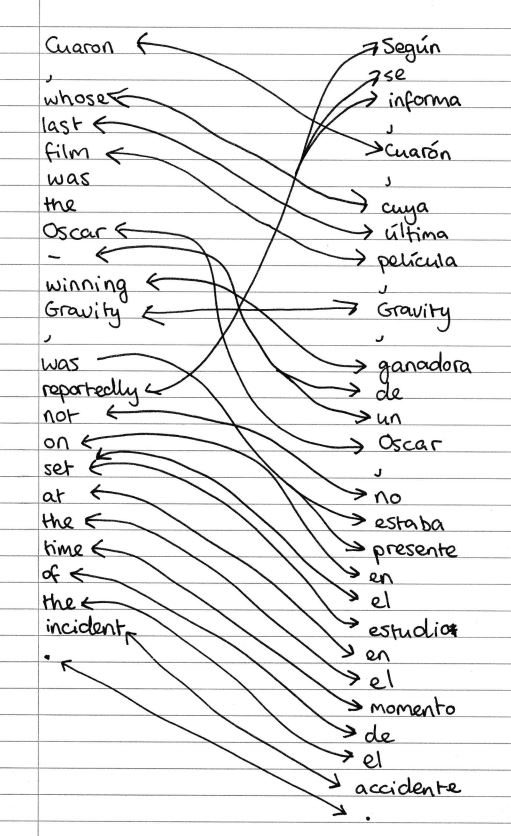 Cuaron
,
whose
last
film
was
the
Oscar
-
winning
Gravity
,
was
reportedly
not
on
set
at
the
time
of
the
incident
.
Según
se
informa
,
Cuarón
,
cuya
última
película
,
Gravity
,
ganadora
de
un
Oscar
,
no
estaba
presente
en
el
estudio
en
el
momento
de
el
accidente
.